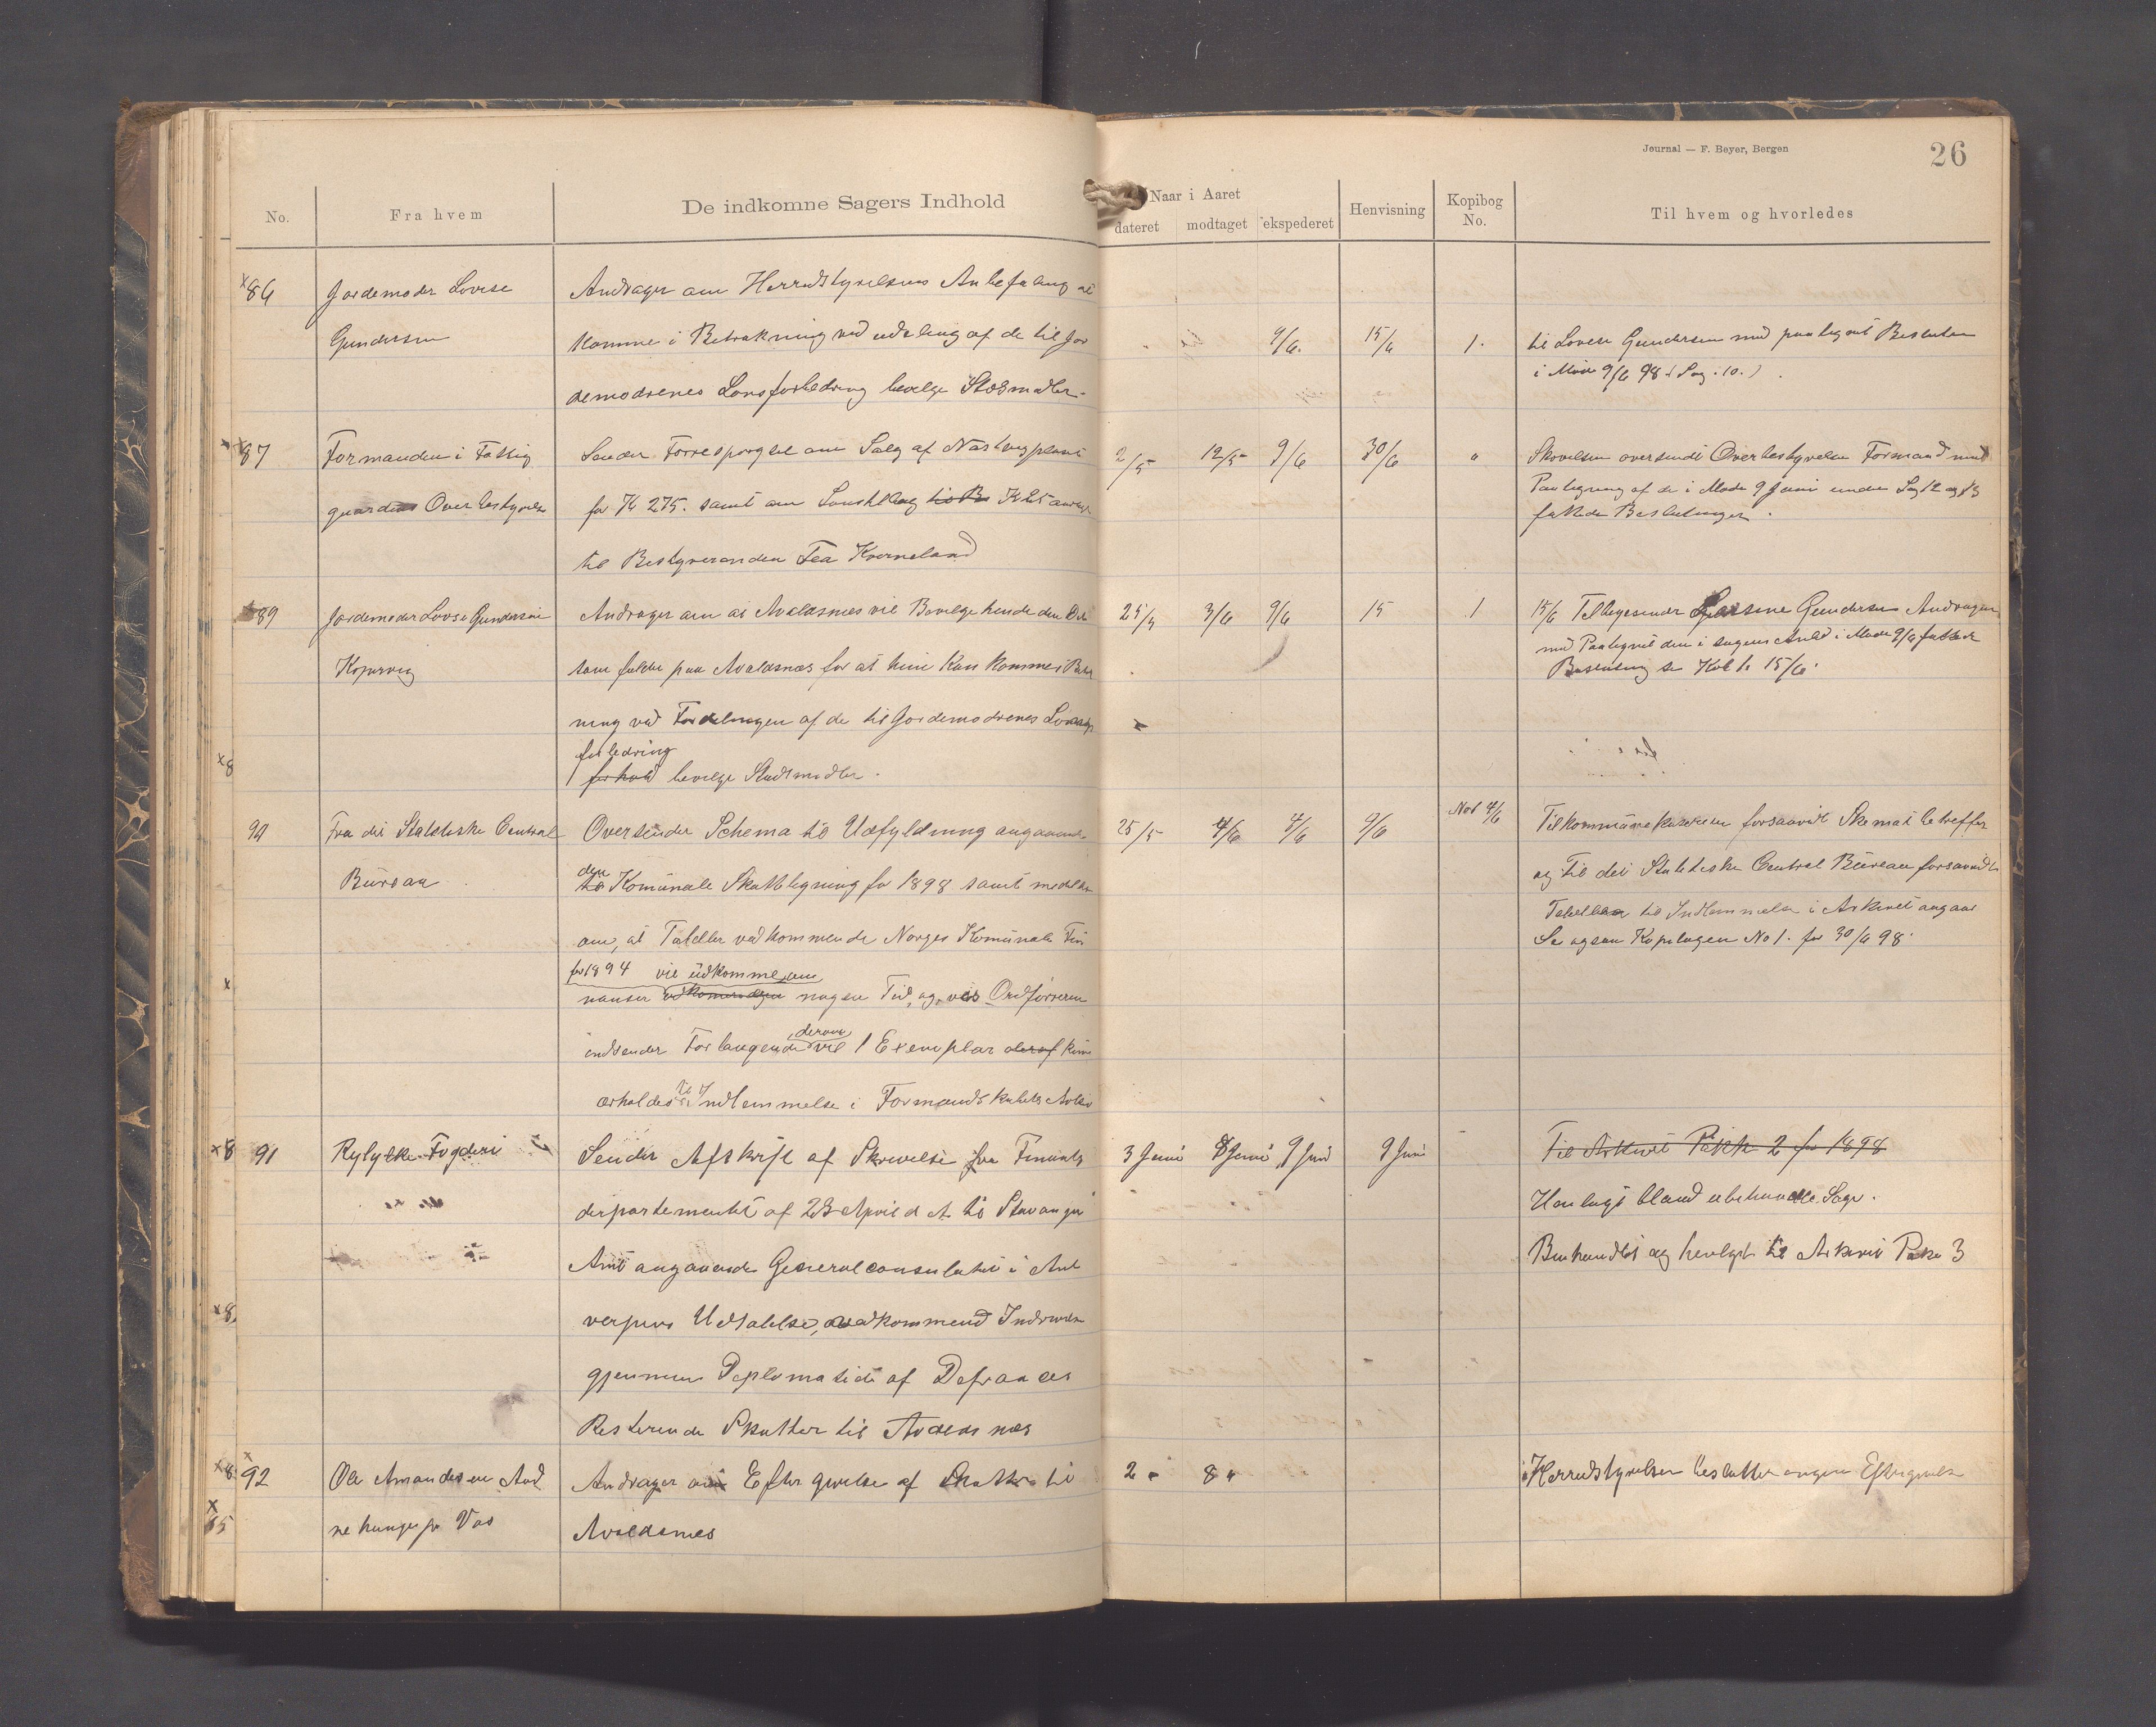 Journal — F. Beyer, Bergen
26
No.
Fra hvem
De indkomne Sagers Indhold
Naar i Aaret
dateret
modtaget
ekspederet
Henvisning
Kopibog
No.
Til hvem og hvorledes
86 Jordemoder Lovise Andrager om Herredstyrelsens Anbefaling at
Gundersen komme i Betrakning ved udeling af de til Jor 9/6. 15/6 1. til Lovise Gundersen med paategnet Beslutn
demodrenes Lønsforbedring bevilge Statsmidler. i Møde 9/6 98 (Sag. 10.)
87 Formanden i Fattig Sender Forrespørgsel om Salg af 2/5 12/5 9/6 30/6 " Skrivelsen oversendt Overbestyrelse Formand med
gaardens Overbestyrelse for Kr 275. samt om til Kr 25 Paategning af de i Møde 9 Juni under Sag 12 og 13
til Bestyrerinden Tea Kverneland fattede Beslutninger.
89 Jordemoder Lovise Gundersen Andrager om at Avaldsnes vil Bevilge hende den Del 25/5 3/6 9/6 15 1 15/6 Gundersen Andragen
Kopervig som falder paa Avaldsnes for at hun kan komme i med Paategnet den i sagens Anled i Møde 9/6 fattede
ning ved Fordelingen af de til Jordemodrenes Løns Beslutning se 15/6.
forbedring
forhold bevilge Statsmidler.
90 Fra det Statistiske Central Oversender Schema til Udfyldning angaaende 25/5 4/6 4/6 9/6 No1 4/6 Til kommunekasseren forsaavidt Skemat betreffer
Büreau den Komünale Skatteligning for 1898 samt meddeler og til det Statistiske Central Büreau forsaavidt
om, at Tabeller vedkommende Norges Komünale Fin Tabellen til Indlemmelse i Arkivet angaar
for 1894 vil udkomme om Se ogsaa Kopibogen No 1. for 30/6 98.
nanser nogen Tid, og vis Ordføreren
derom
indsender Forlangende vil 1 Exemplar deraf kun
erholdes til Indlemmelse i Formandskabets Arkiv
91 Ryfylke Fogderi Sender Afskrift af Skrivelse fra Finants 3 Juni 8 Juni 9 Juni 9 Juni Til Arkivet Pakke 2 for 1898
departementet af 23 April d. A. til Stavanger Henlagt bland ubehandle Sager.
Amt angaaende Generalconsulatet i Ant Behandlet og henlagt til Arkivet Pakke 3
verpens Udtalelse, vedkommend Inddrivelse
gjennem Deplomatiet af
Resterende Skatter til Avaldsnes
92 Ole Amandesen Aad Andrager om Eftergivelse af Skatter til 2 " 8 " Herredstyrelsen beslutter ingen Eftergivelse
Avaldsnes